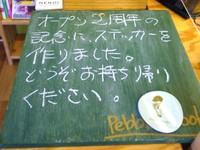 オープン2周年の
記念に、ステッカーを
作りました。
どうぞお持ち帰り
ください。